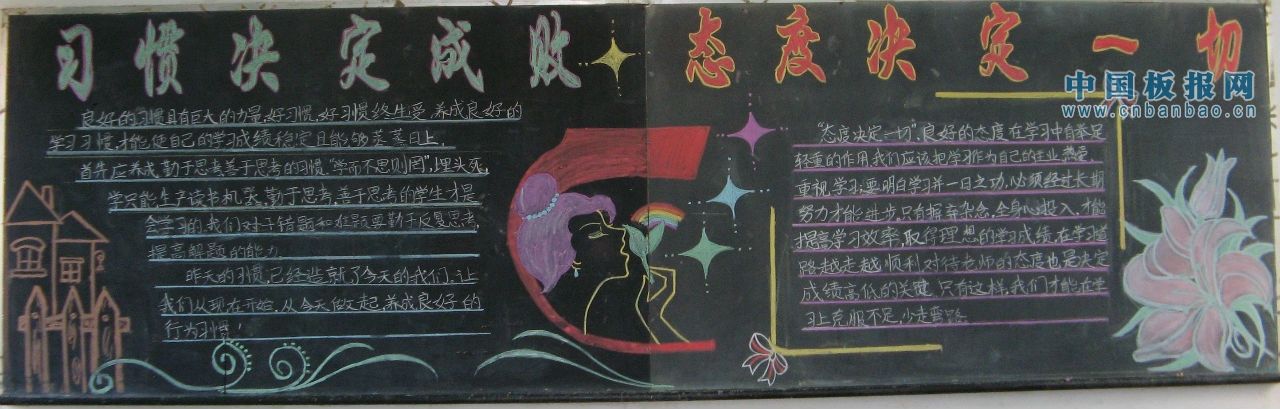 习惯决定成败
良好的习惯具有巨大的力量,好习惯,好习惯终生受,养成良好的
学习习惯,才能使自己的学习成绩稳定且能够蒸蒸日上。
首先应养成勤于思考善于思考的习惯“学而不思则罔”,埋头死
学只能生产读书机器,勤于思考,善于思考的学生才是
会学习的,我们对于错题和难题要勤于反复思考,
提高解题的能力
昨天的习惯,已经造就了今天的我们,让
我们从现在开始,从今天做起,养成良好的
行为习惯!
态度决定一切
中国板报网
www.cnbanbao.cn
“态度决定一切”,良好的态度在学习中有举足
轻重的作用,我们应该把学习作为自己的主业,热爱,
重视学习;要明白学习并一日之功,必须经过长期
努力才能进步,只有摒弃杂念,全身心投入,才能
提高学习效率,取得理想的学习成绩,在学习道
路越走越顺利,对待老师的态度也是决定
成绩高低的关键,只有这样,我们才能在学
习上克服不足,少走弯路